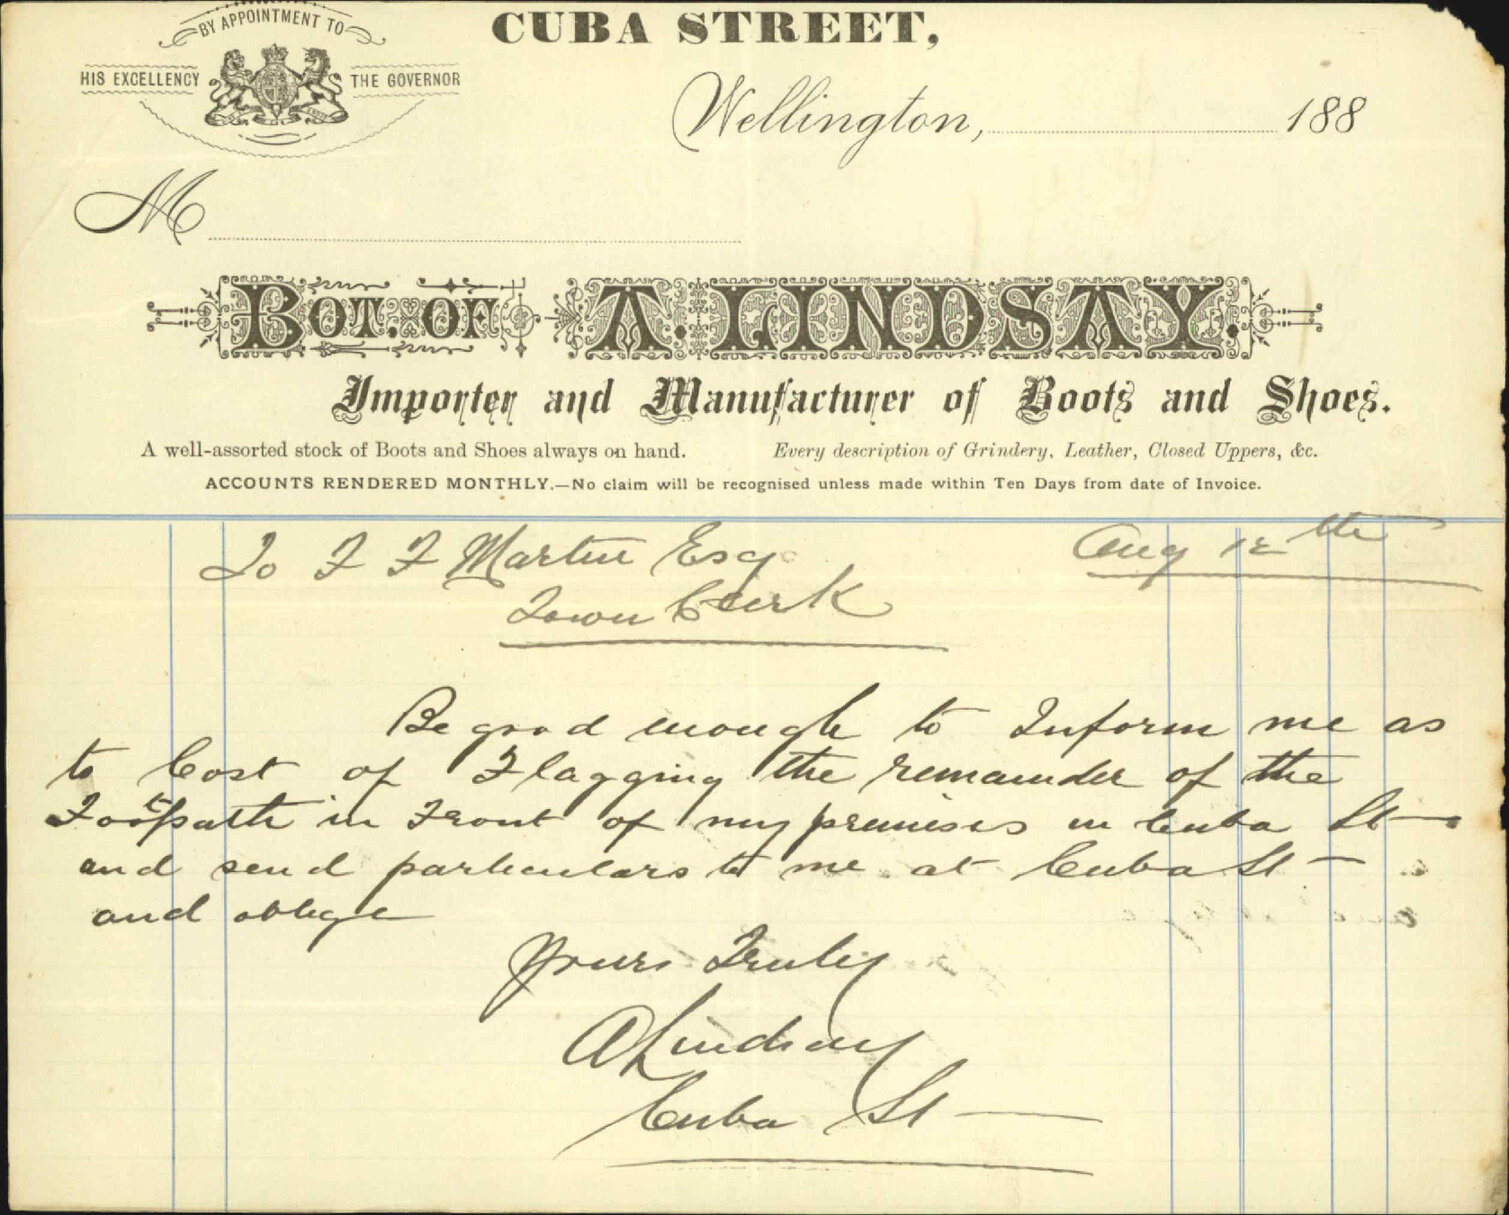 BY APPOINTMENT TO
HIS EXCELLENCY THE GOVERNOR
CUBA STREET,
Wellington, 188
M
BOT. OF A. LINDSAY.
Importer and Manufacturer of Boots and Shoes.
A well-assorted stock of Boots and Shoes always on hand. Every description of Grindery, Leather, Closed Uppers, &c.
ACCOUNTS RENDERED MONTHLY.—No claim will be recognised unless made within Ten Days from date of Invoice.
Aug 12th
To F F Martin Esq
Town Clerk
Be good enough to Inform me as
to Cost of Flagging the remainder of the
Footpath in Front of my premises in Cuba St
and send particulars to me at Cuba St
and oblige
Yours Truly
A Lindsay
Cuba St